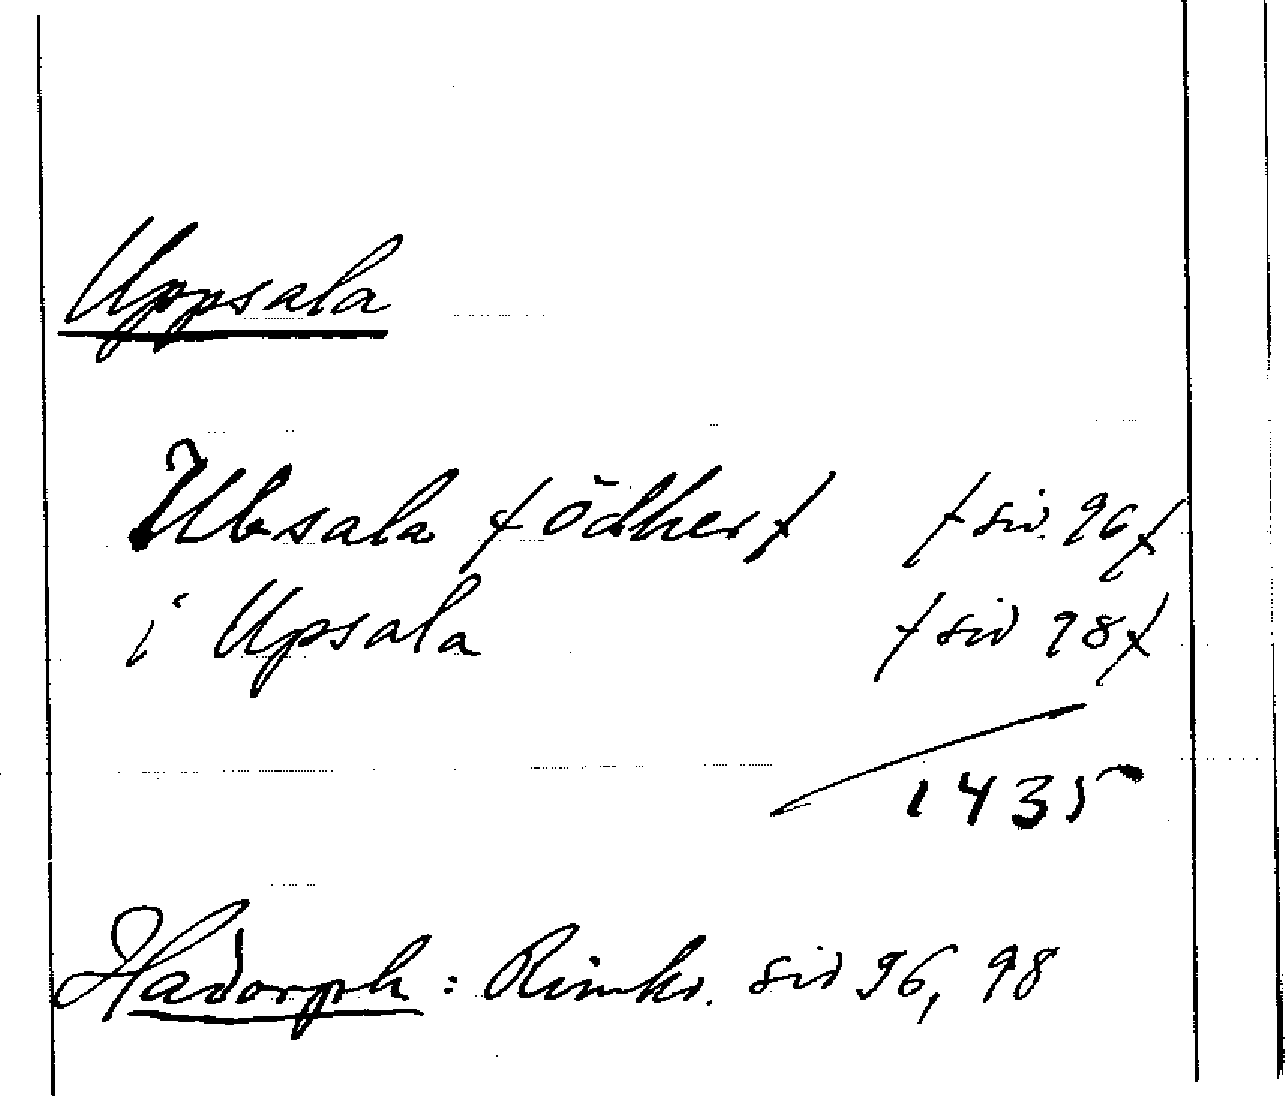 Uppsala
Ubsala /ödher/ /sid. 96/
i Upsala /sid 98/
1435
Hadorph: Rimkr. sid 96, 98